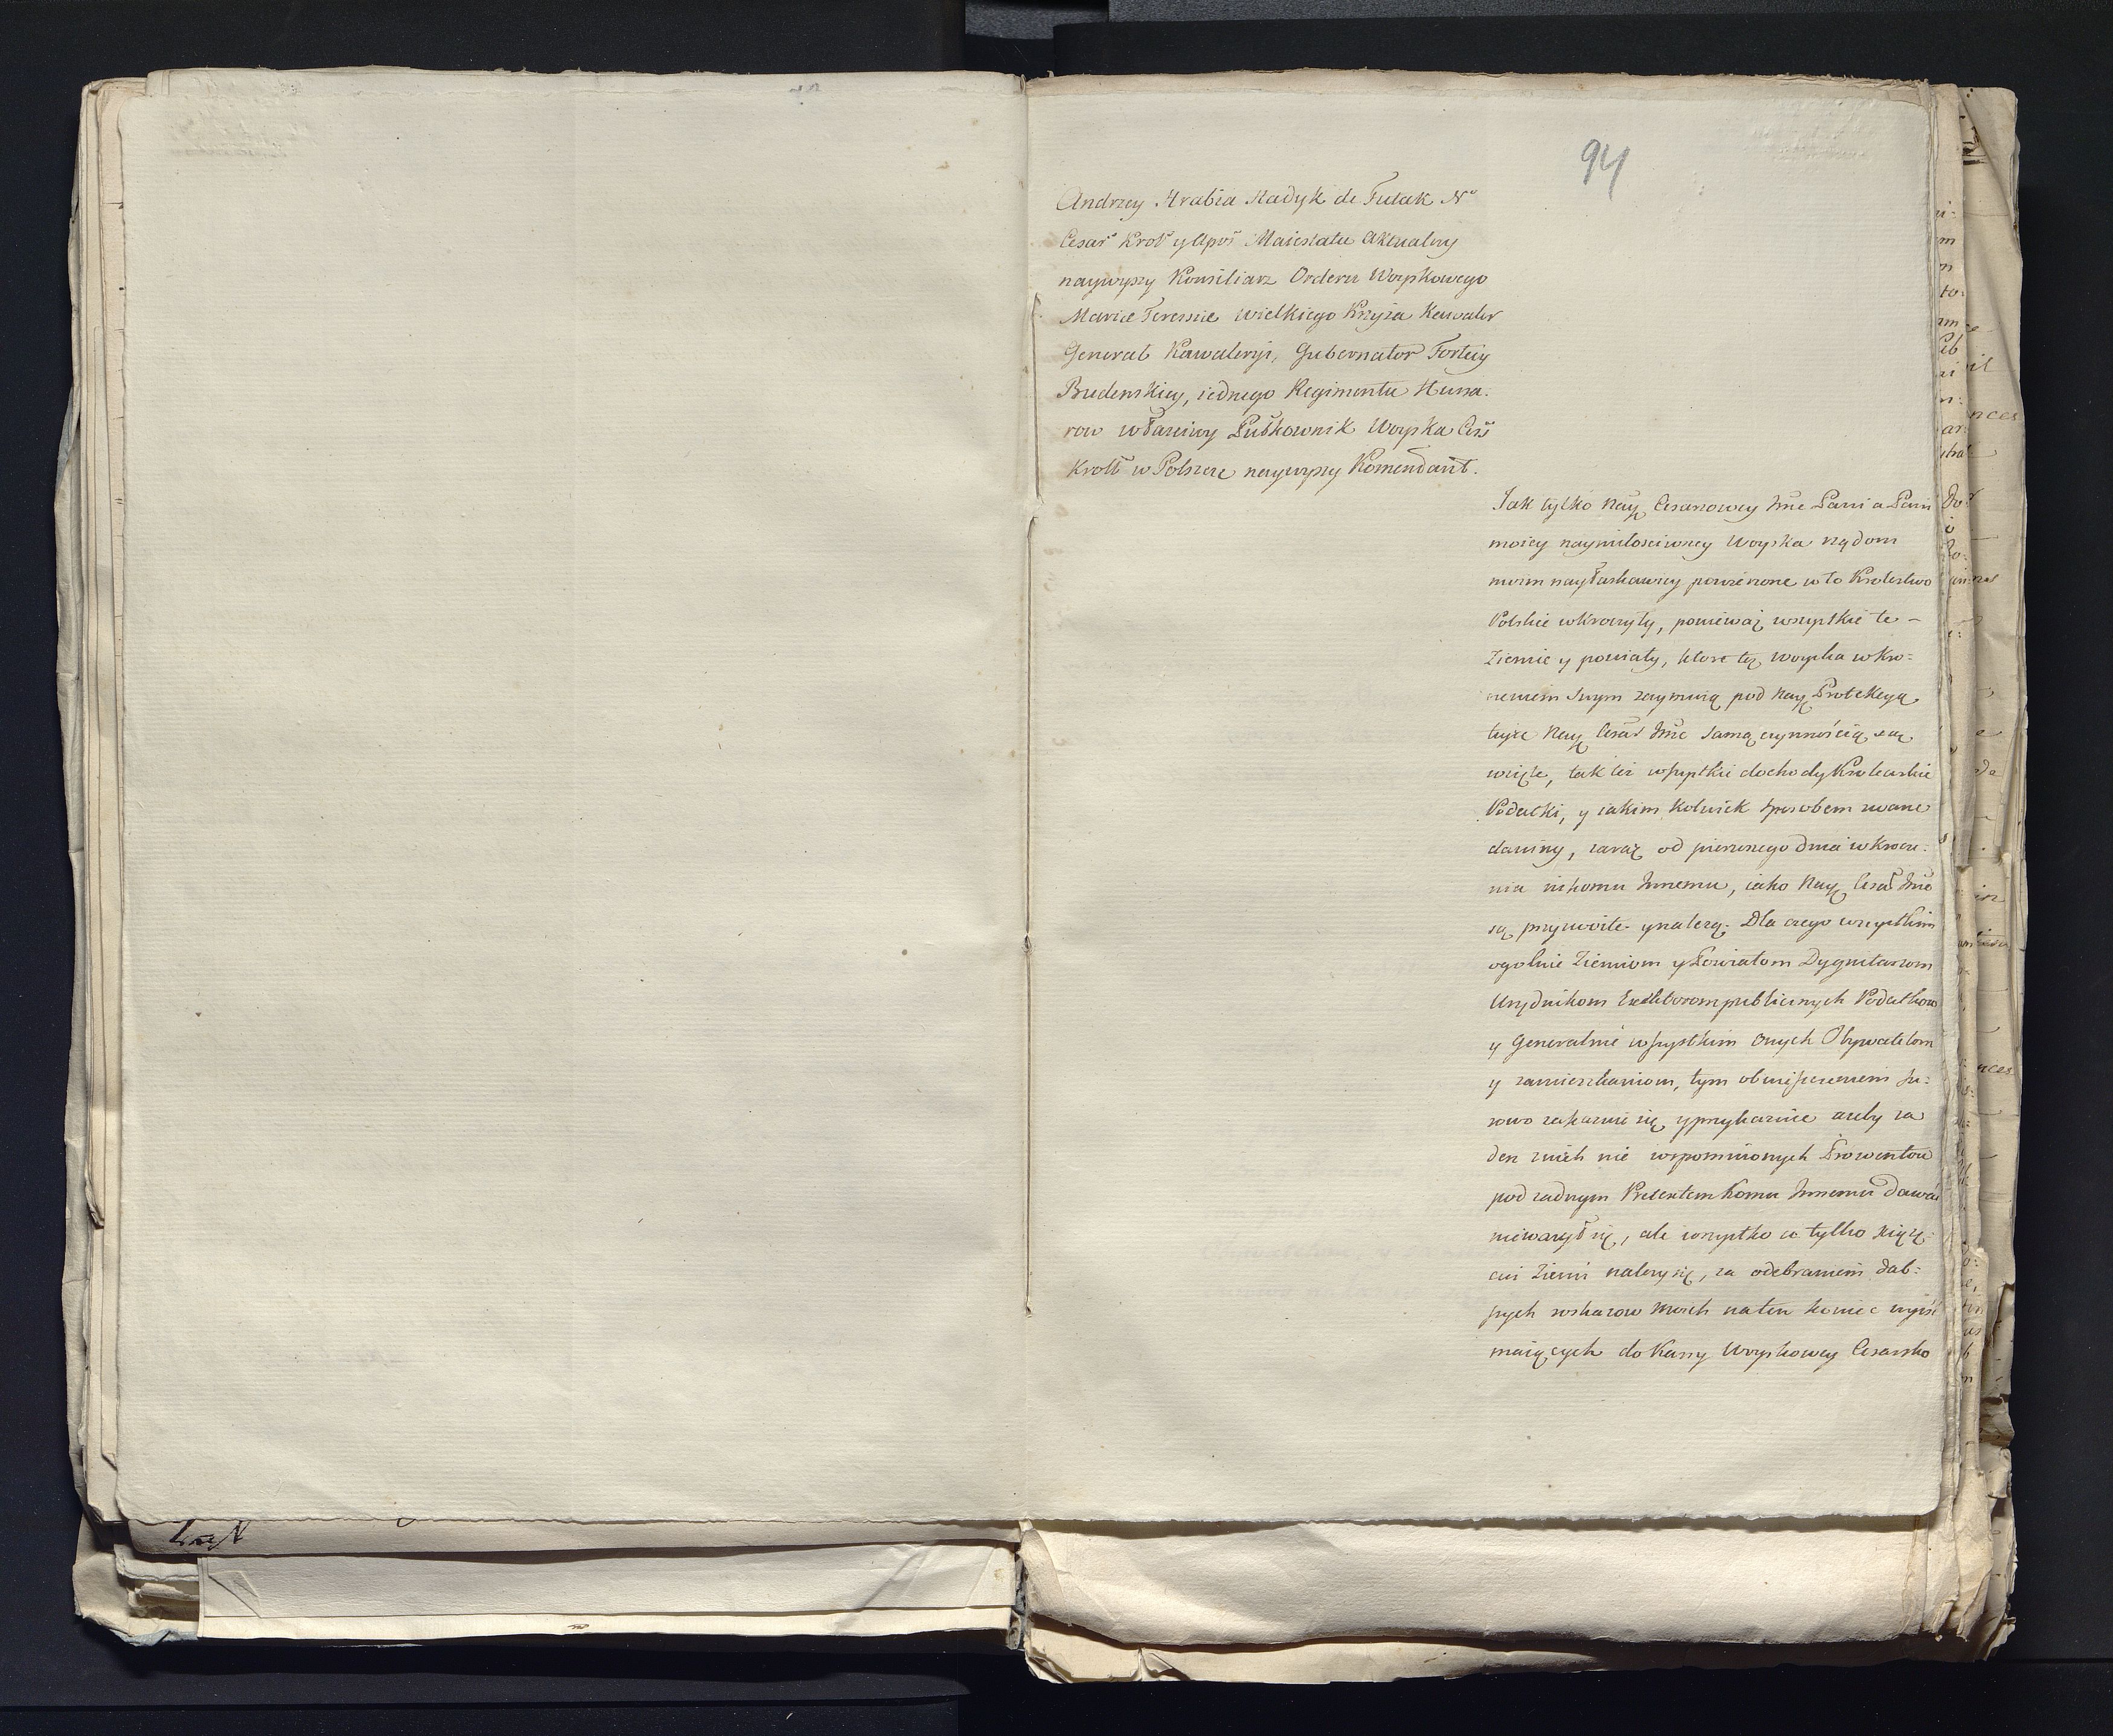 94
Andrzey Hrabia Hadyk de Futak N°
Cesar Krol y Apos Maiestatu Aktualny
naywyszy Konsiliarz Orderu Woyskowego
Mariæ Teressiæ Wielkiego Krzyża Kawaler
General Kawaleryi, Gubernator Fortecy
Budenskiey, iednego Regimentu Hussa-
row własciwy Pułkownik Woyska Ces
Krol w Polszcze naywyszy Komendant.
Jak tylko Nayz Cesarzowey Jmc Pani a Pani
moiey naymiłosciwszey Woyska rządom
moim nayłaskawiey powierzone w to Krolestwo
Polskie wkroczyły, poniewaz wszystkie te -
Ziemie y powiaty, ktore też woyska wkro:
czeniem Swym zaymuią pod Nayz Protekcyą
teyze Nayz Cesar Jmc Samą czynnością są
wzięte, tak też wszystkie dochody Krolewskie
Podatki, y iakim kolwiek sposobem zwane
daniny, zaraz od pierwszego dnia wkrocze:
nia nikomu Innemu, iako Nayz Cesar Jmc
są przyzwoite y nalezą. Dla czego wszystkim
ogolnie Ziemiom y Powiatom Dygnitarzom
Urzędnikom Exaktorom publicznych Podatkow
y Generalnie wszystkim onych Obywatelom
y zamieszkaniom, tym obwieszczeniem su:
rowo zakazuie się y przykazuie azeby za
den z nich nie wspomnionych Prowentow
pod zadnym Pretextem Komu Innemu dawać
nieważył się, ale wszystko co tylko
Ziemi nalezy się, za odebraniem dal:
szych roskazow moich na ten koniec wyiść
maiących do Kassy Woyskowey Cesarsko